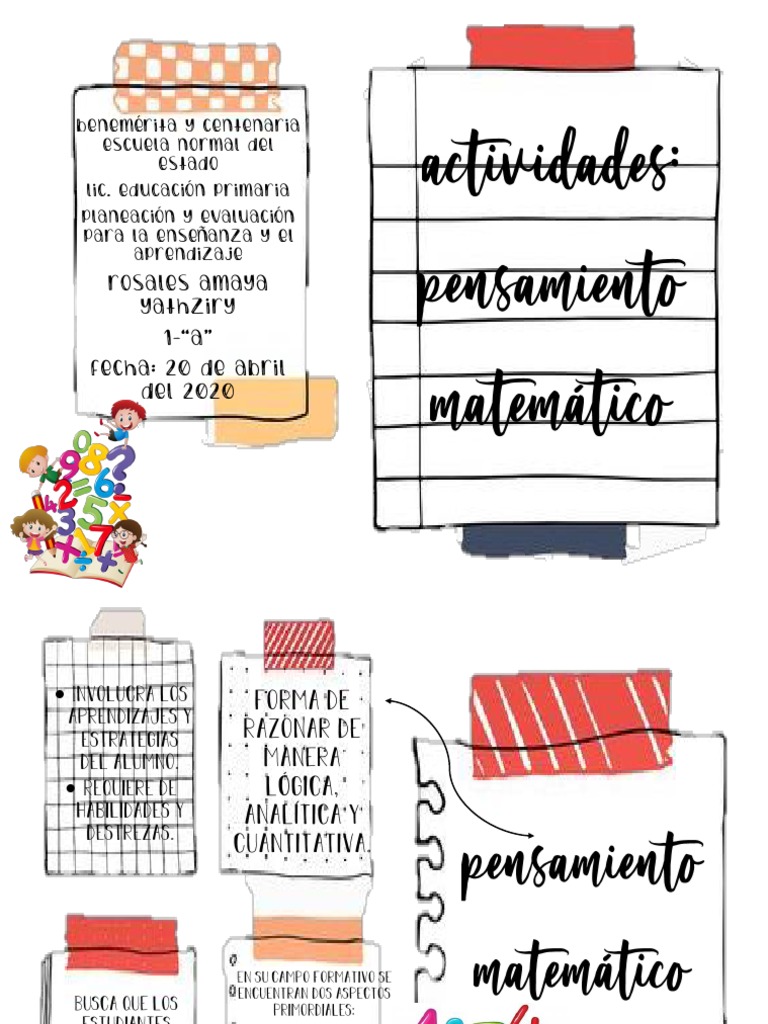 benemérita y centenaria
escuela normal del
estado
lic. educación primaria
planeación y evaluación
para la enseñanza y el
aprendizaje
rosales amaya
yathziry
1-“a”
fecha: 20 de abril
del 2020
actividades:
pensamiento
matemático
• INVOLUCRA LOS
APRENDIZAJES Y
ESTRATEGIAS
DEL ALUMNO.
• REQUIERE DE
HABILIDADES Y
DESTREZAS.
FORMA DE
RAZONAR DE
MANERA
LÓGICA,
ANALÍTICA Y
CUANTITATIVA.
pensamiento
matemático
BUSCA QUE LOS
ESTUDIANTES
EN SU CAMPO FORMATIVO SE
ENCUENTRAN DOS ASPECTOS
PRIMORDIALES: